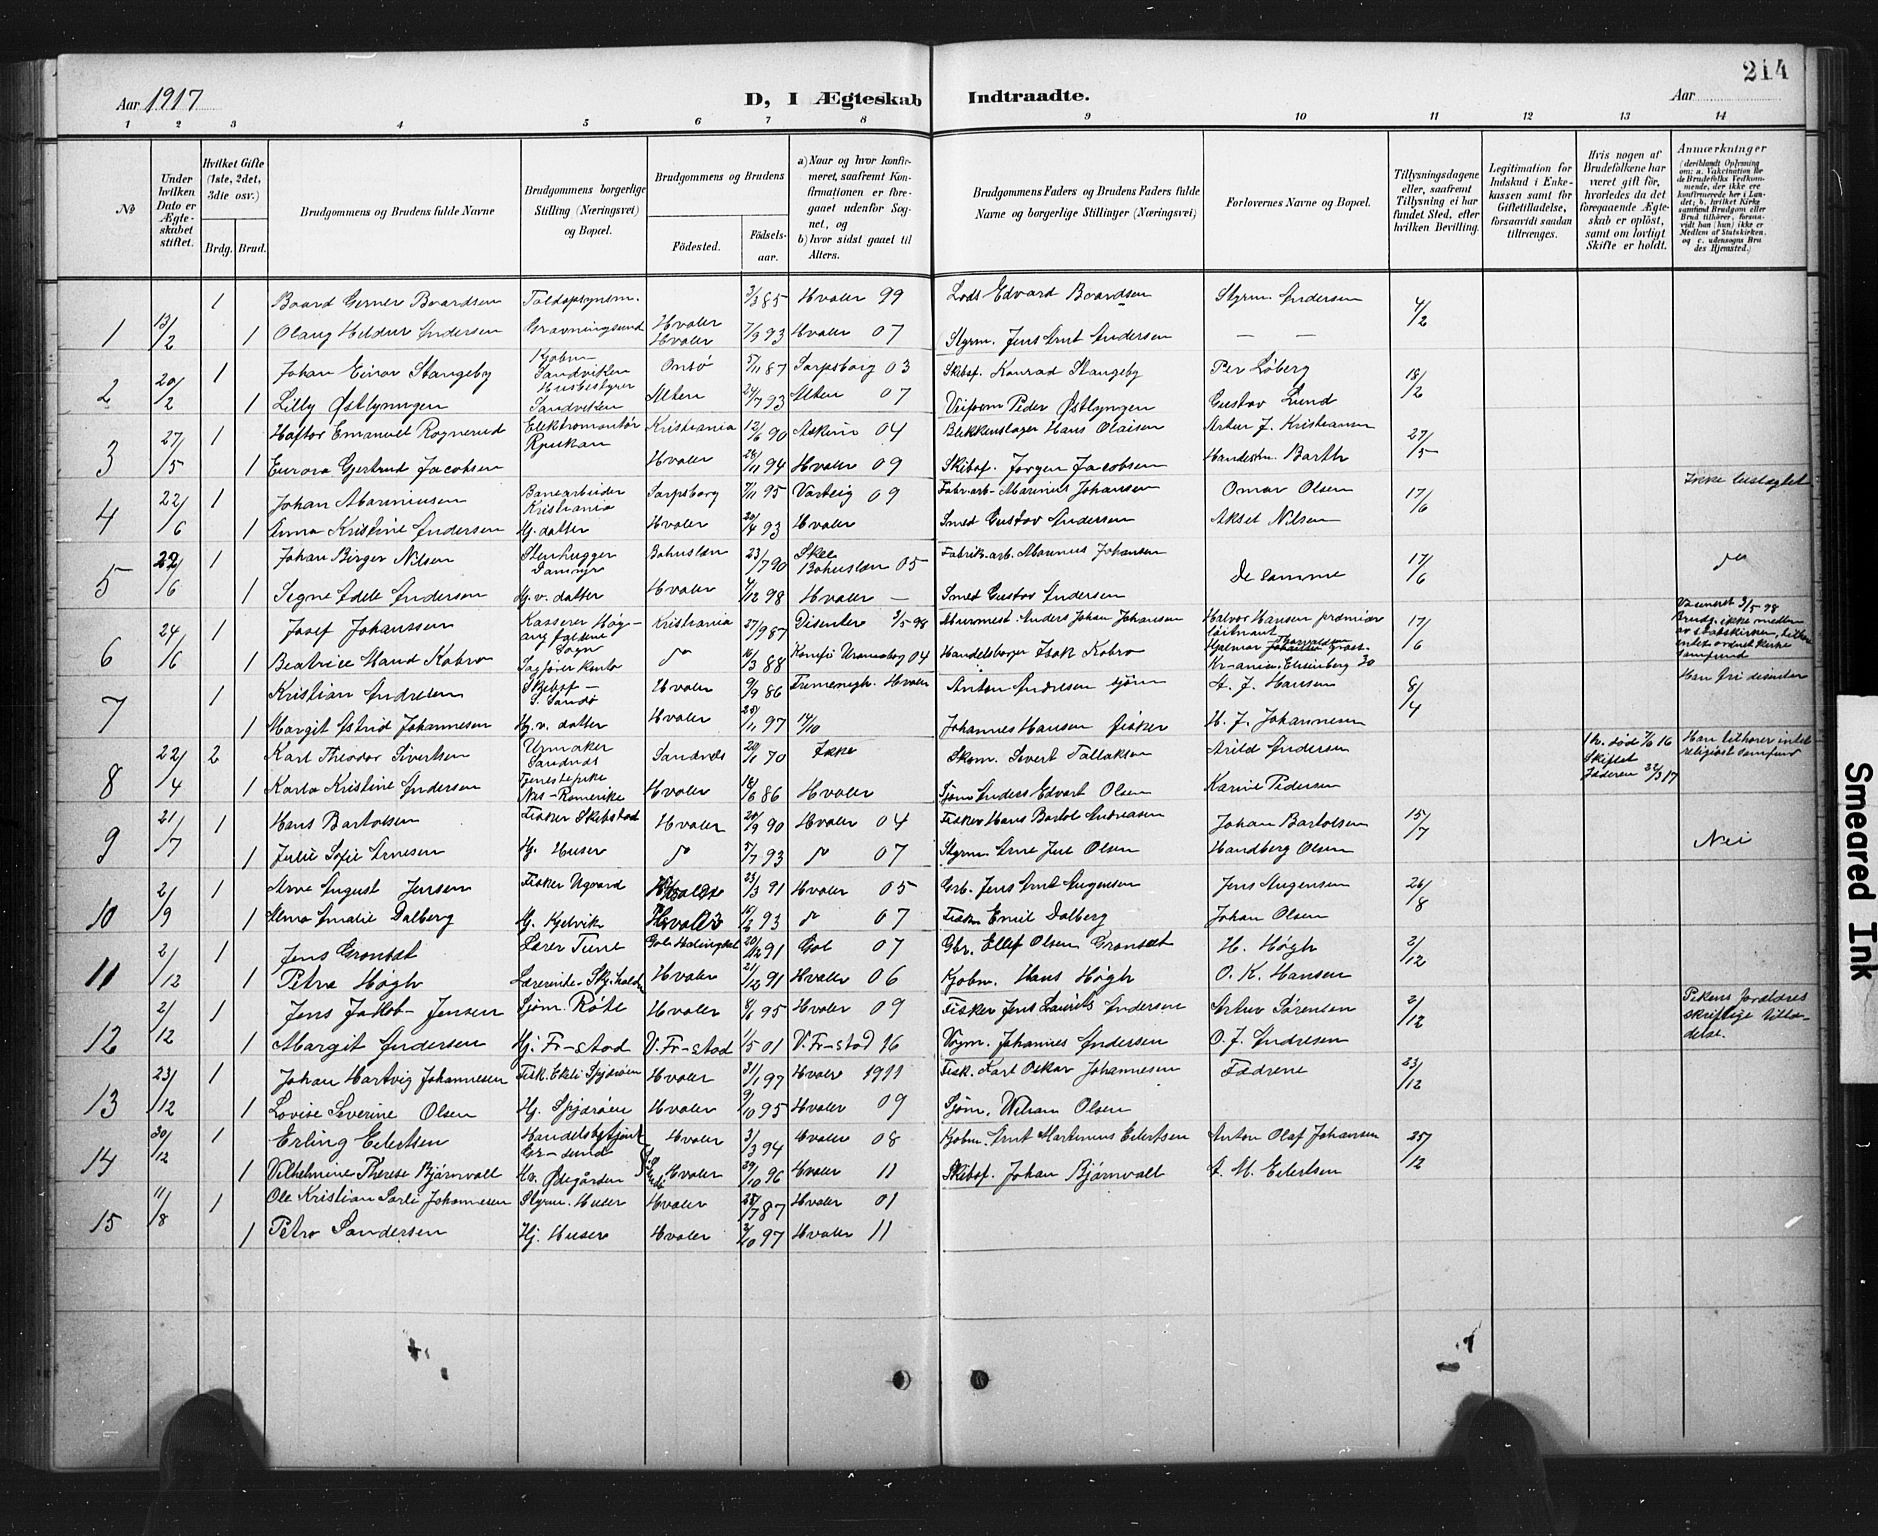 214
Aar 1917
D, I Ægteskab Indtraadte.
Aar
1 2 3 4 5 6 7 8 9 10 11 12 13 14
No
Under hvilken Dato er Ægteskabet stiftet.
Hvilket Gifte (1ste, 2det, 3die osv.)
Brdg. Brud.
Brudgommens og Brudens fulde Navne
Brudgommens borgerlige Stilling (Næringsvei) og Bopæl.
Brudgommens og Brudens
Födested.
Födselsaar.
a) Naar og hvor konfirmeret, saafremt Konfirmationen er foregaaet udenfor Sognet, og
b) hvor sidst gaaet til Alters.
Brudgommens Faders og Brudens Faders fulde Navne og borgerlige Stillinger (Næringsvei)
Forlovernes Navne og Bopæl.
Tillysningsdagene eller, saafremt Tillysning ei har fundet Sted, efter hvilken Bevilling.
Legitimation for Indskud i Enkekassen samt for Giftetilladelse, forsaavidt saadan tiltrænges.
Hvis nogen af Brudefolkene har været gift för, hvorledes da det foregaaende Ægteskab er oplöst, samt om lovligt Skifte er holdt.
Anmærkninger
(deriblandt Oplysning om: a. Vakcination for de Brudefolks Vedkommende, der ikke ere konfirmerede her i Landet; b. hvilket Kirkesamfund Brudgom eller Brud tilhörer, forsaavidt han (hun) ikke er Medlem af Statskirken, og c. udensogns Brudes Hjemsted.)
1 13/2 1 Baard Gerner Baardsen 3/3 85 Hvaler 99 Lods Edvard Baardsen Styrm. Andersen 4/2
1 Olaug Hildur Andersen Gravningsund Hvaler Hvaler 7/9 93 Hvaler 07 Styrm. Jens Arnt Andersen — —
2 20/2 1 Johan Einar Stangeby Kjøbm– Sandviken Onsø 5/11 87 Sarpsborg 03 Skibsf. Konrad Stangeby Per Løberg 18/2
1 Lilly Østlyngen Husbestyrer Sandviken Alten 24/7 93 Alten 07 Peder Østlyngen Gustav Lund
3 27/5 1 Haftor Emanuel Rognerud Elektromontør Rjukan Kristiania 12/6 90 Askim 04 Blikkenslager Hans Olaisen Artur J. Kristiansen 27/5
1 Eurora Gjertrud Jacobsen Hvaler 26/11 94 Hvaler 09 Skibsf. Jørgen Jacobsen Handelsm. Barth
4 22/6 1 Johan Marinius Banearbeider Kristiania Sarpsborg 7/11 95 Varteig 09 Fabr.arb– Marinus Johansen Omar Olsen 17/6 Ikke beslægtet
1 Anna Kristine Andersen Hj. datter Hvaler 20/4 93 Hvaler Smed Gustav Andersen Aksel Nilsen
5 22/6 1 Johan Birger Nilsen Stenhugger Bohuslæn 23/7 90 Skee Bohuslæn 05 Fabrik.arb. Marinus Johansen De samme 17/6
1 Signe Adele Andersen Hj. v. datter Hvaler 4/12 98 Hvaler — Smed Gustav Andersen
6 24/6 1 Josef Johanssen Kasserer Kristiania 27/9 87 Disenter 3/5 98 Murmest. Anders Johan Johansen Halvor Hansen premiærløitnant 17/6
1 Beatrice Maud Kobro 16/3 88 Konf. Uranienborg 04 Handelsborger Isak Kobro Hjelmar Thorvaldsen Kr–ania. Elisenberg 30
Vaccineret 3/5 98 Brudg. ikke medlem av statskirken, tilhører intet ordnet kirkesamfund
7 1 Kristian Andresen Skibsf– S. Sandø Hvaler 9/9 86 Frimenigh. Hvaler Anton Andresen sjøm A. J. Hansen 8/4 Han fri disinter
1 Margit Astrid Johannesen Hj. v. datter Hvaler 25/11 97 14/10 Johannes Hansen fisker H. J. Johannesen
8 22/4 2 Karl Theodor Sivertsen Urmaker Sandnes Sandnes 20/1 70 Ikke Skom. Sivert Tallaksen Arild Andersen 1 h. død 7/6 16 Skiftet Jæderen 22/3 17 Han tilhører intet religiøst samfund
1 Karla Kristine Andersen Tjenestepike Nes–Romerike Hvaler 18/6 86 Hvaler Sjøm Anders Edvart Olsen Karine Pedersen
9 21/7 1 Hans Bartolsen Fisker Skibstad Hvaler 28/9 90 Hvaler 04 Fisker Hans Bartol Andreasen Johan Bartolsen 15/7 Nei
1 Julie Sofie Arnesen Hj. Huser 5/7 93 07 Styrm. Arne Juel Olsen Handberg Olsen
10 2/9 1 Arne August Jensen Fisker Ugaard Hvaler 23/3 91 Hvaler 05 Grb. Jens Arnt Augensen Jens Augensen 26/8
1 Alma Amalie Dalberg Hj. Kjelvik Hvaler 16/2 93 07 Fisker Emil Dalberg Johan Olsen
11 2/12 1 Jens Grønset Lærer Tune Gol. Hallingdal 20/12 91 Gol 07 Gbr. Ellef Olsen Grønset H. Høgh 2/12
1 Petra Høgh Lærerinde Hvaler 21/12 91 Hvaler 06 Kjøbm. Hans Høgh O. K. Hansen
12 2/12 1 Jens Jakob– Jensen Sjøm. Røte Hvaler 8/6 95 Hvaler 09 Fisker Jens Laurits Andersen Artur Sørensen 2/12 Pikens forældres skriftlige tilladelse.
1 Margit Andersen Hj. Fr–stad V. Fr–stad 1/5 01 V. Fr–stad 16 Vogm. Johannes Andersen O. J. Andresen
13 23/12 1 Johan Hartvig Johannesen Fisk. Ekeli Spjærøen Hvaler 31/1 97 Hvaler 1911 Fisk. Karl Oskar Johannesen Fædrene 23/12
1 Lovise Severine Olsen Hj. Spjærøen Hvaler 9/10 95 Hvaler 09 Sjøm. Wilram Olsen
14 30/12 1 Erling Eilertsen Handelsbetjent Gr–sund Hvaler 3/3 94 Hvaler 08 Kjøbm. Arnt Martinius Eilertsen Anton Olaf Johansen 25/12
1 Vilhelmine Therese Bjørnvalt Hv. Ødegården Hvaler 29/10 96 Hvaler 11 Skibsf. Johan Bjørnvalt A. M. Eilertsen
15 11/8 1 Ole Kristian Sarli Johannesen Styrm. Huser Hvaler 25/7 87 Hvaler 01
1 Petra Sandersen Hj. Huser Hvaler 2/10 97 Hvaler 11
Smeared Ink